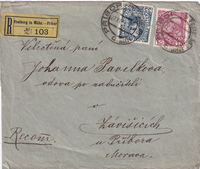 Freiberg in Mähr. - Příbor
103
Velectěná paní
Johanna Pavelková
vdova po
Závišicích
u Příbora
Morava
Recom.